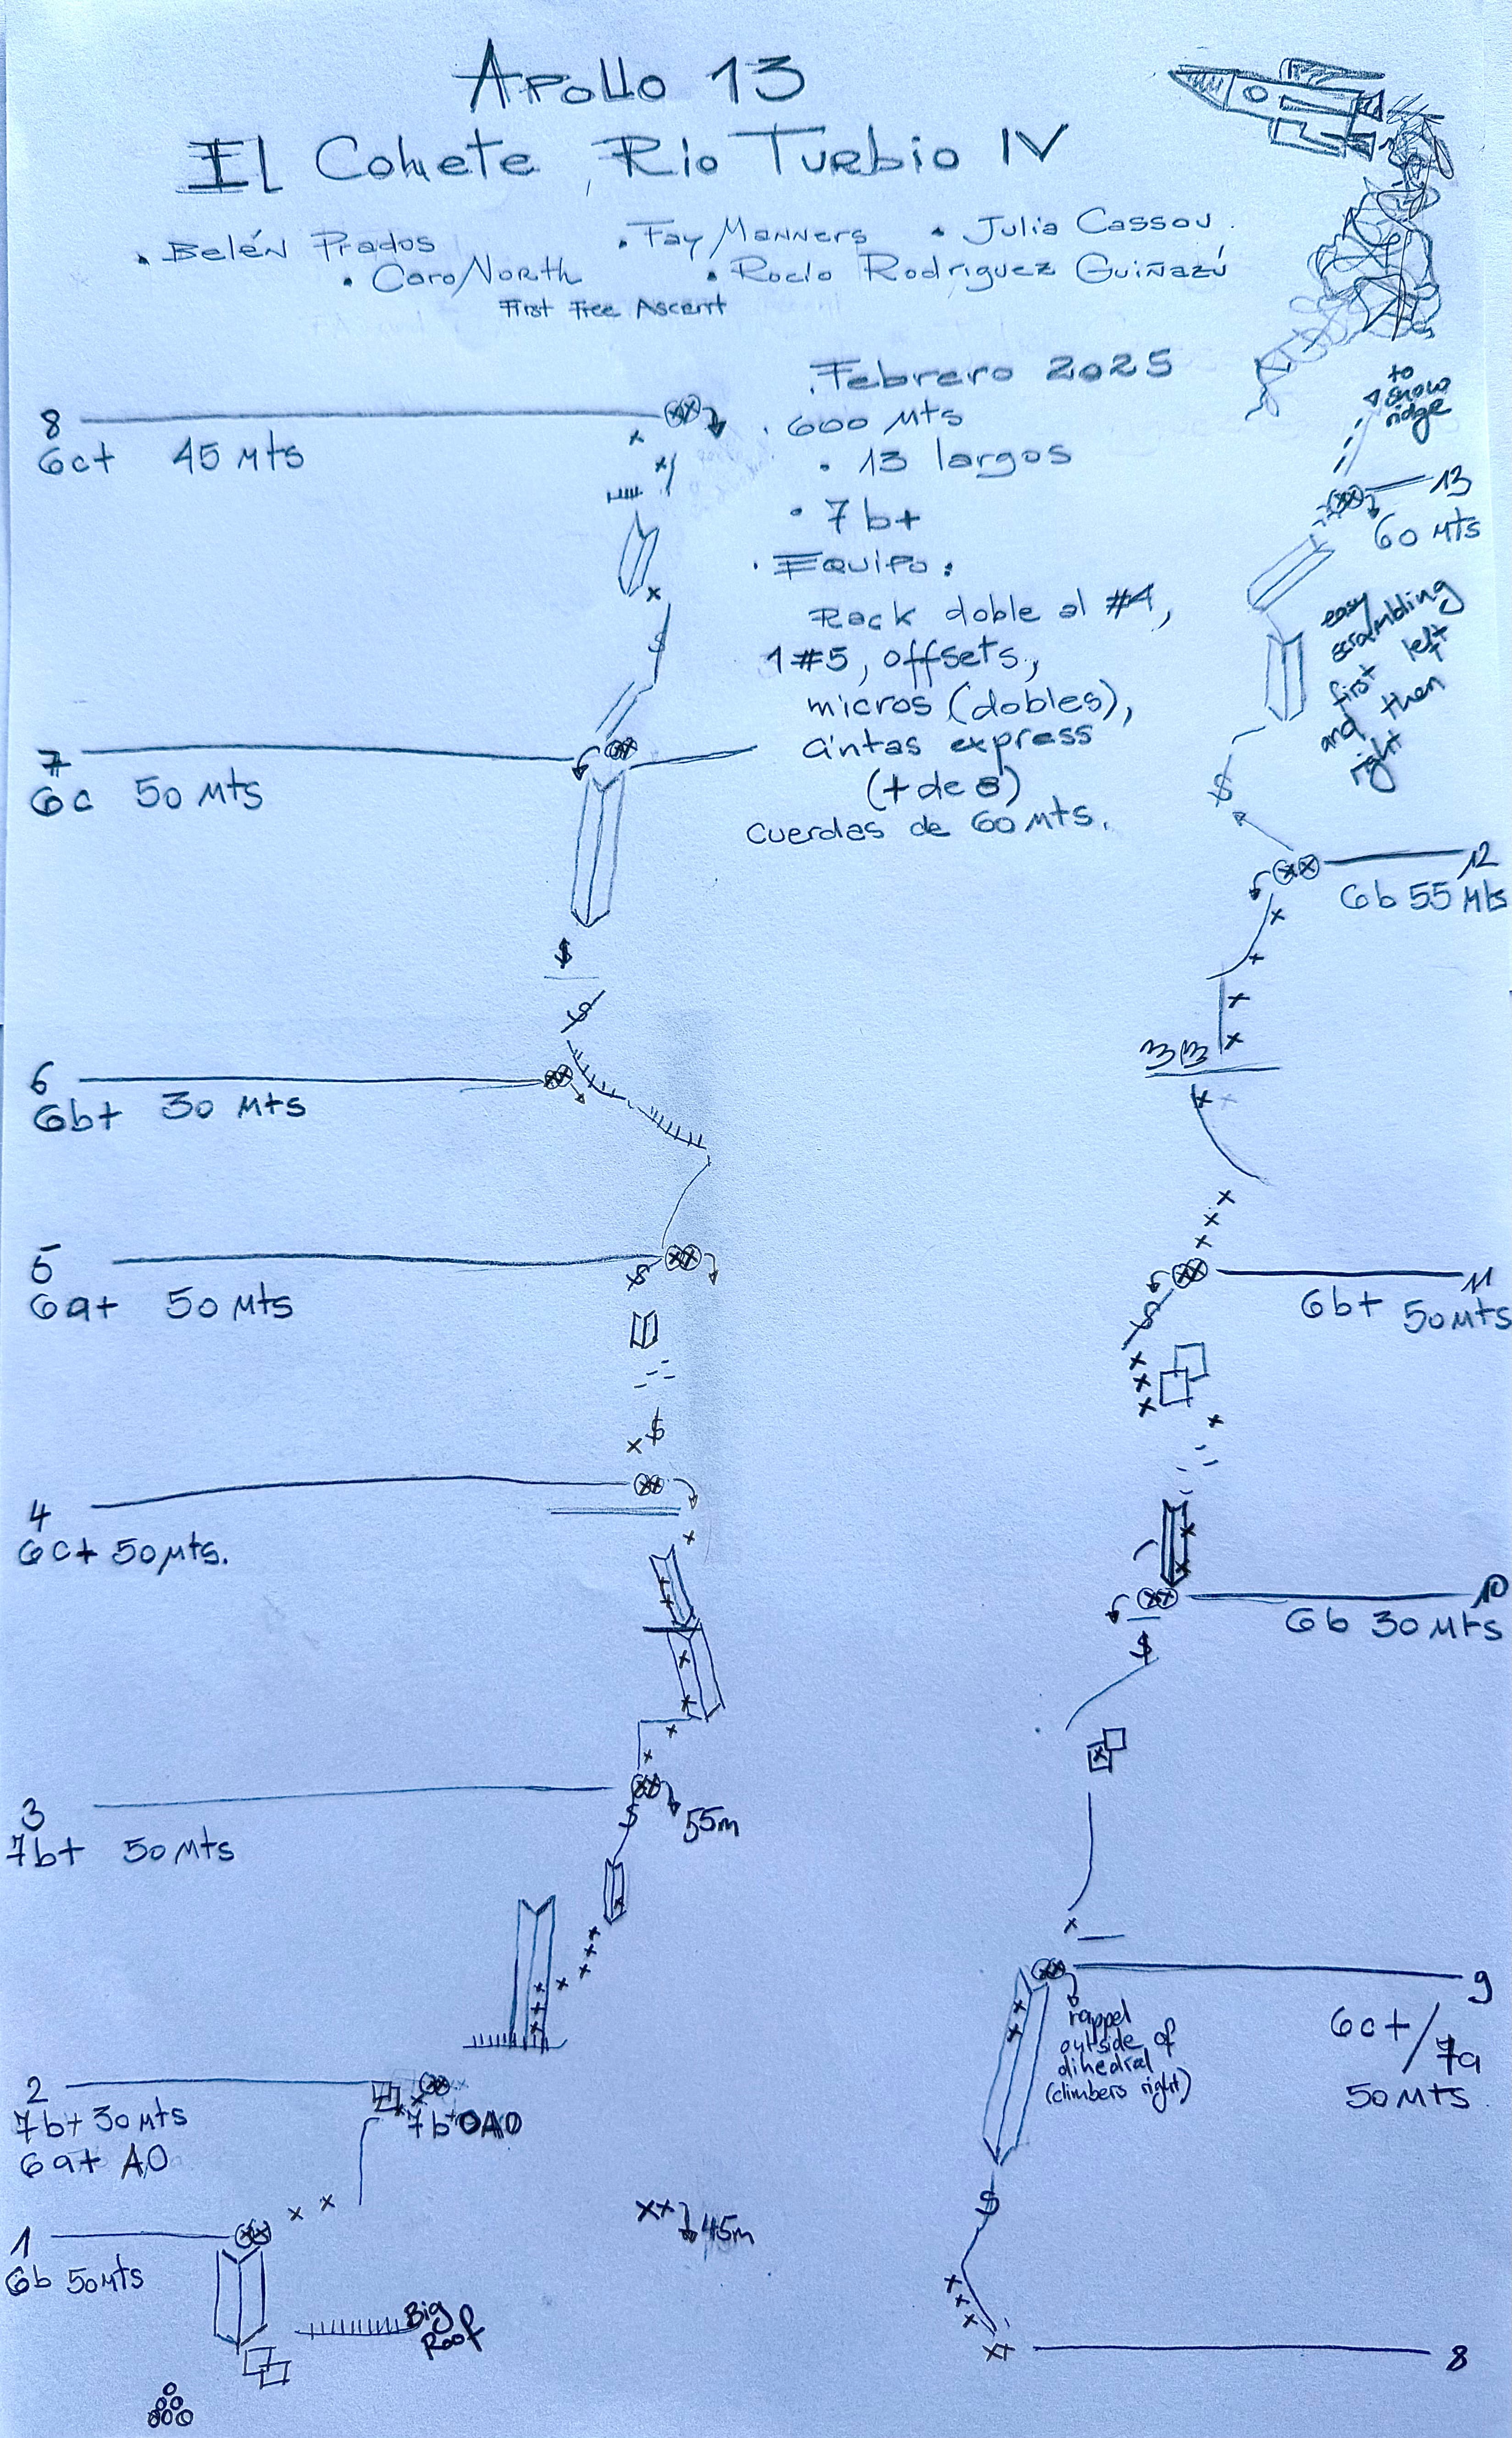 Apollo 13
El Cohete, Rio Turbio IV
• Belén Prados • Fay Manners • Julia Cassou.
• Caro North • Rocío Rodriguez Guiñazú
First Free Ascent
. Febrero 2025
. 600 Mts
• 13 largos
• 7b+
• Equipo:
Rack doble al #4,
1#5, offsets,
micros (dobles),
cintas express
(+ de 8)
cuerdas de 60 mts.
8
6c+ 45 Mts
7
6c 50 Mts
6
6b+ 30 Mts
5
6a+ 50 Mts
4
6c+ 50 Mts.
3
7b+ 50 Mts
55m
2
7b+ 30 Mts
6a+ A0
7b+ O A0
1
6b 50 Mts
45m
Big
Roof
to
snow
ridge
13
60 Mts
easy
scrambling
first left
and then
right
12
6b 55 Mts
11
6b+ 50 Mts
10
6b 30 Mts
9
6c+/7a
50 Mts
rappel
outside of
dihedral
(climbers right)
8